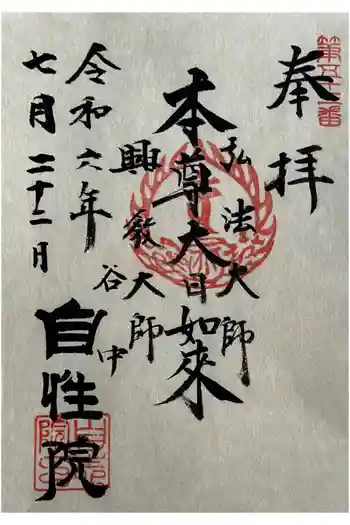 奉拝
第五十二番
弘法大師
本尊大日如來
興教大師
谷中
令和六年
七月二十二日
自性院